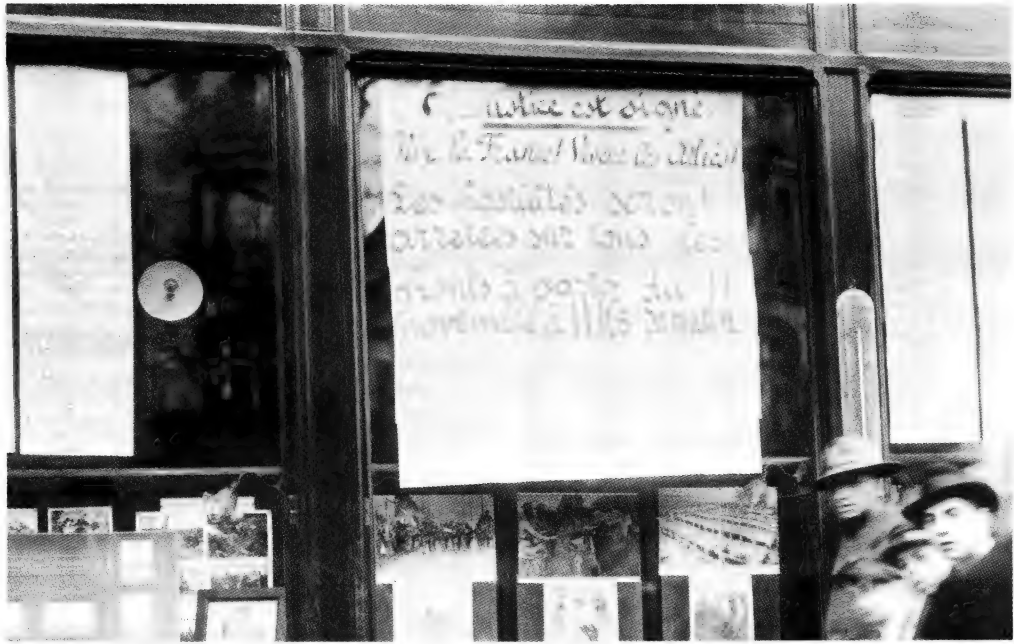 est signé
Vive la France! Vive les Alliés!
Les hostilités seront
arretées sur tous les
fronts à partir du 11
novembre à 11 Hrs du matin